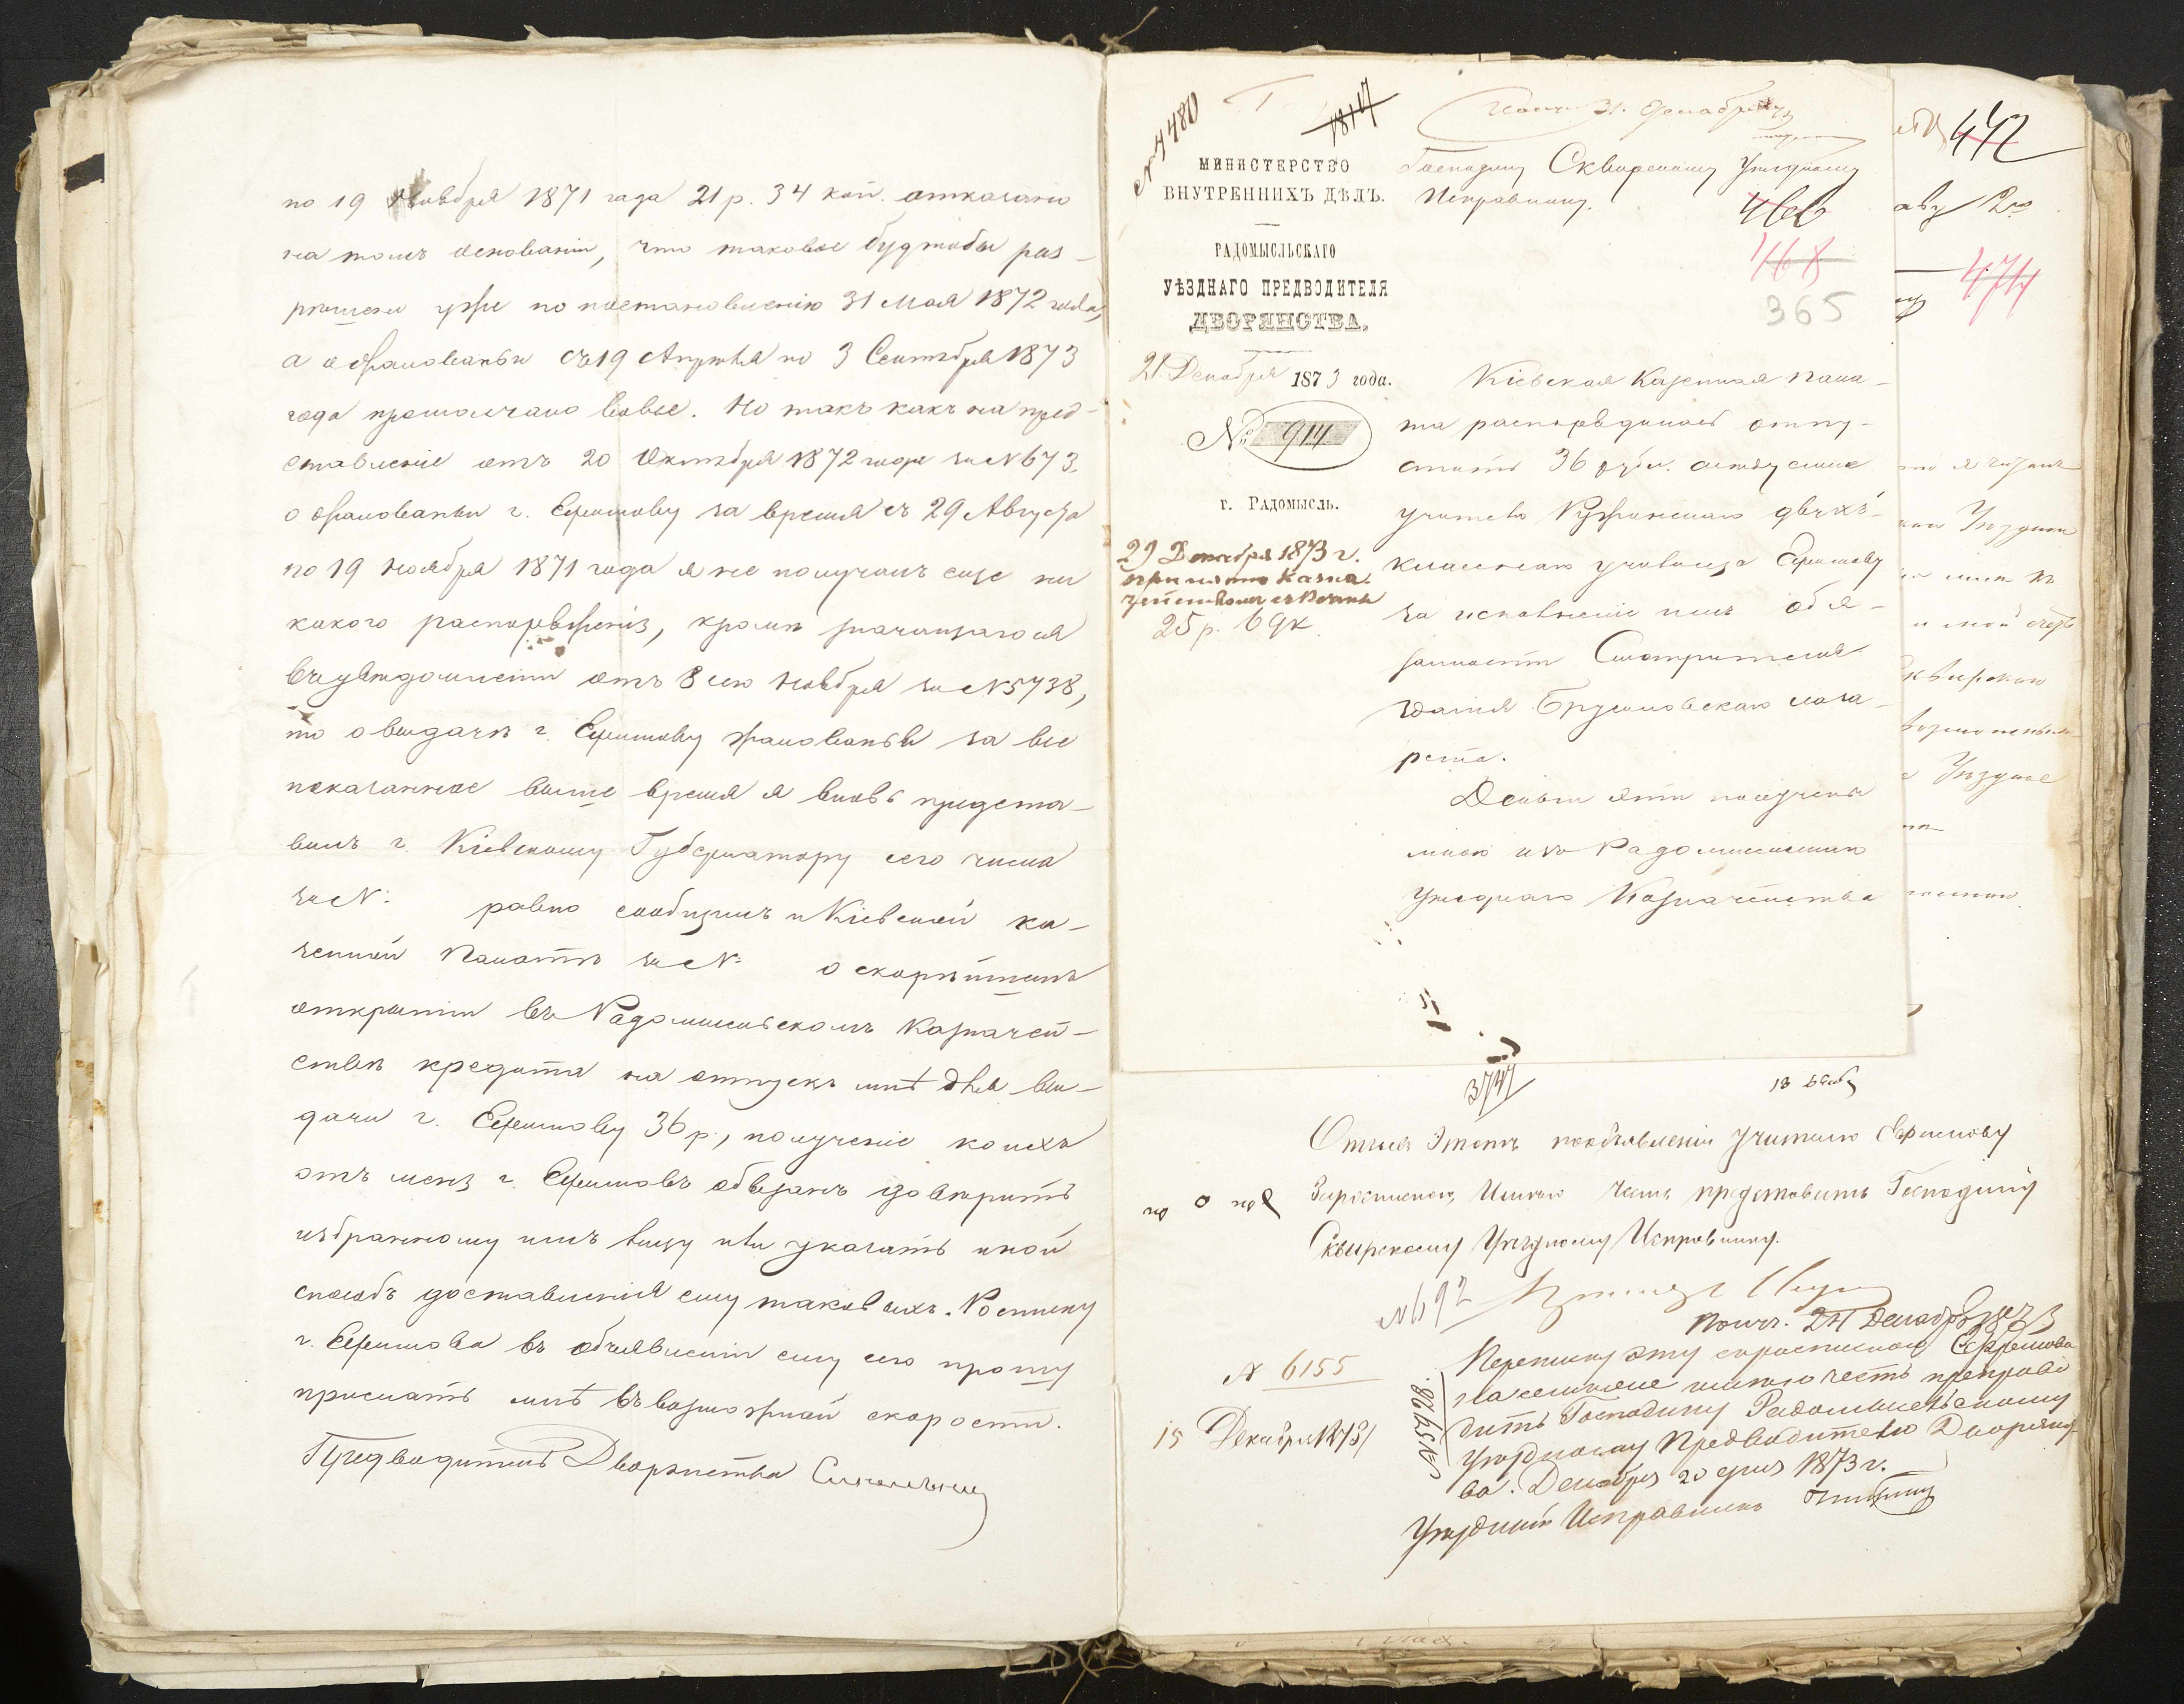 по 19 Ноября 1871 года 21 р. 34 коп. отказано
на томъ основаніи, что таковое будтобы раз-
рѣшено уже по постановленію 31 Мая 1872 года,
а о жалованьи съ 19 Апрѣля по 3 Сентября 1873
года промолчано вовсе. Но такъ какъ на пред-
ставленіе отъ 20 Октября 1872 года за № 673,
о жалованьи г. Ефимову за время съ 29 Августа
по 19 Ноября 1871 года я не получалъ еще ни
какого распоряженія, кромѣ значащагося
въ увѣдомленіи отъ 8 сего Ноября за № 5738,
то о выдачѣ г. Ефимову жалованья за все
показанное выше время я вновь предста-
вилъ г. Кіевскому Губернатору сего числа
за № равно сообщилъ и Кіевской ка-
зенной Палатѣ за № о скорѣйшемъ
открытіи въ Радомысльскомъ Казначей-
ствѣ кредита на отпускъ мнѣ для вы-
дачи г. Ефимову 36 р., полученіе коихъ
отъ меня г. Ефимовъ обязанъ довѣрить
избранному имъ лицу или указать иной
способъ доставленія ему таковыхъ. Росписку
г. Ефимова въ объявленіи ему сего прошу
прислать мнѣ въ возможной скорости.
Предводитель Дворянства
№ 7480
1814
МИНИСТЕРСТВО
ВНУТРЕННИХЪ ДѢЛЪ.
РАДОМЫСЛЬСКАГО
УѢЗДНАГО ПРЕДВОДИТЕЛЯ
ДВОРЯНСТВА.
21 Декабря 1873 года.
№ 914
г. РАДОМЫСЛЬ.
29 Декабря 1873 г.
принято Казна-
чействомъ
25 р. 69 к.
31 Декабря
Господину Сквирскому Уѣздному
Исправнику.
468
365
Кіевская Казенная Пала-
та распорядилась отпу-
стить 36 руб. слѣдуемые
учителю Ружинскаго двухъ-
класснаго училища Ефимову
за исполненіе имъ обя-
занности Смотрителя
зданія Брусиловскаго лаза-
рета.
Деньги эти получены
мною изъ Радомысльскаго
Уѣзднаго Казначейства
442
474
3747
Отзывъ этотъ по объявленіи учителю Ефимову
Имѣю честь представить Господину
Сквирскому Уѣздному Исправнику.
№ 692
Получ. 24 Декабря 1873
№ 6155
15 Декабря 1873
Переписку эту съ роспискою Ефимова
имѣю честь препрово-
дить Господину Радомысльскому
Уѣздному Предводителю Дворянст-
ва. Декабря 20 дня 1873 г.
Уѣздный Исправникъ